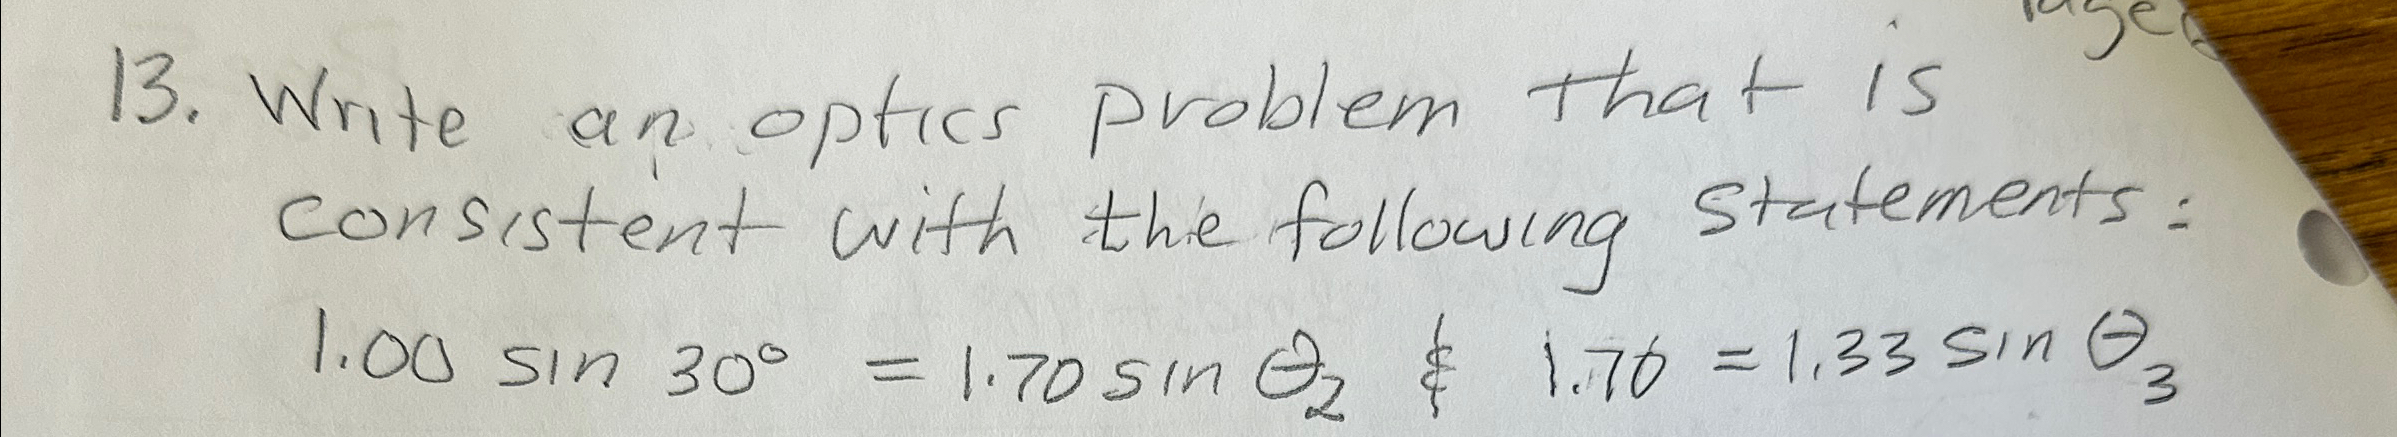 13. Write an optics problem that is
consistent with the following statements:
1.00 sin 30° = 1.70 sin θ₂ & 1.70 = 1.33 sin θ₃